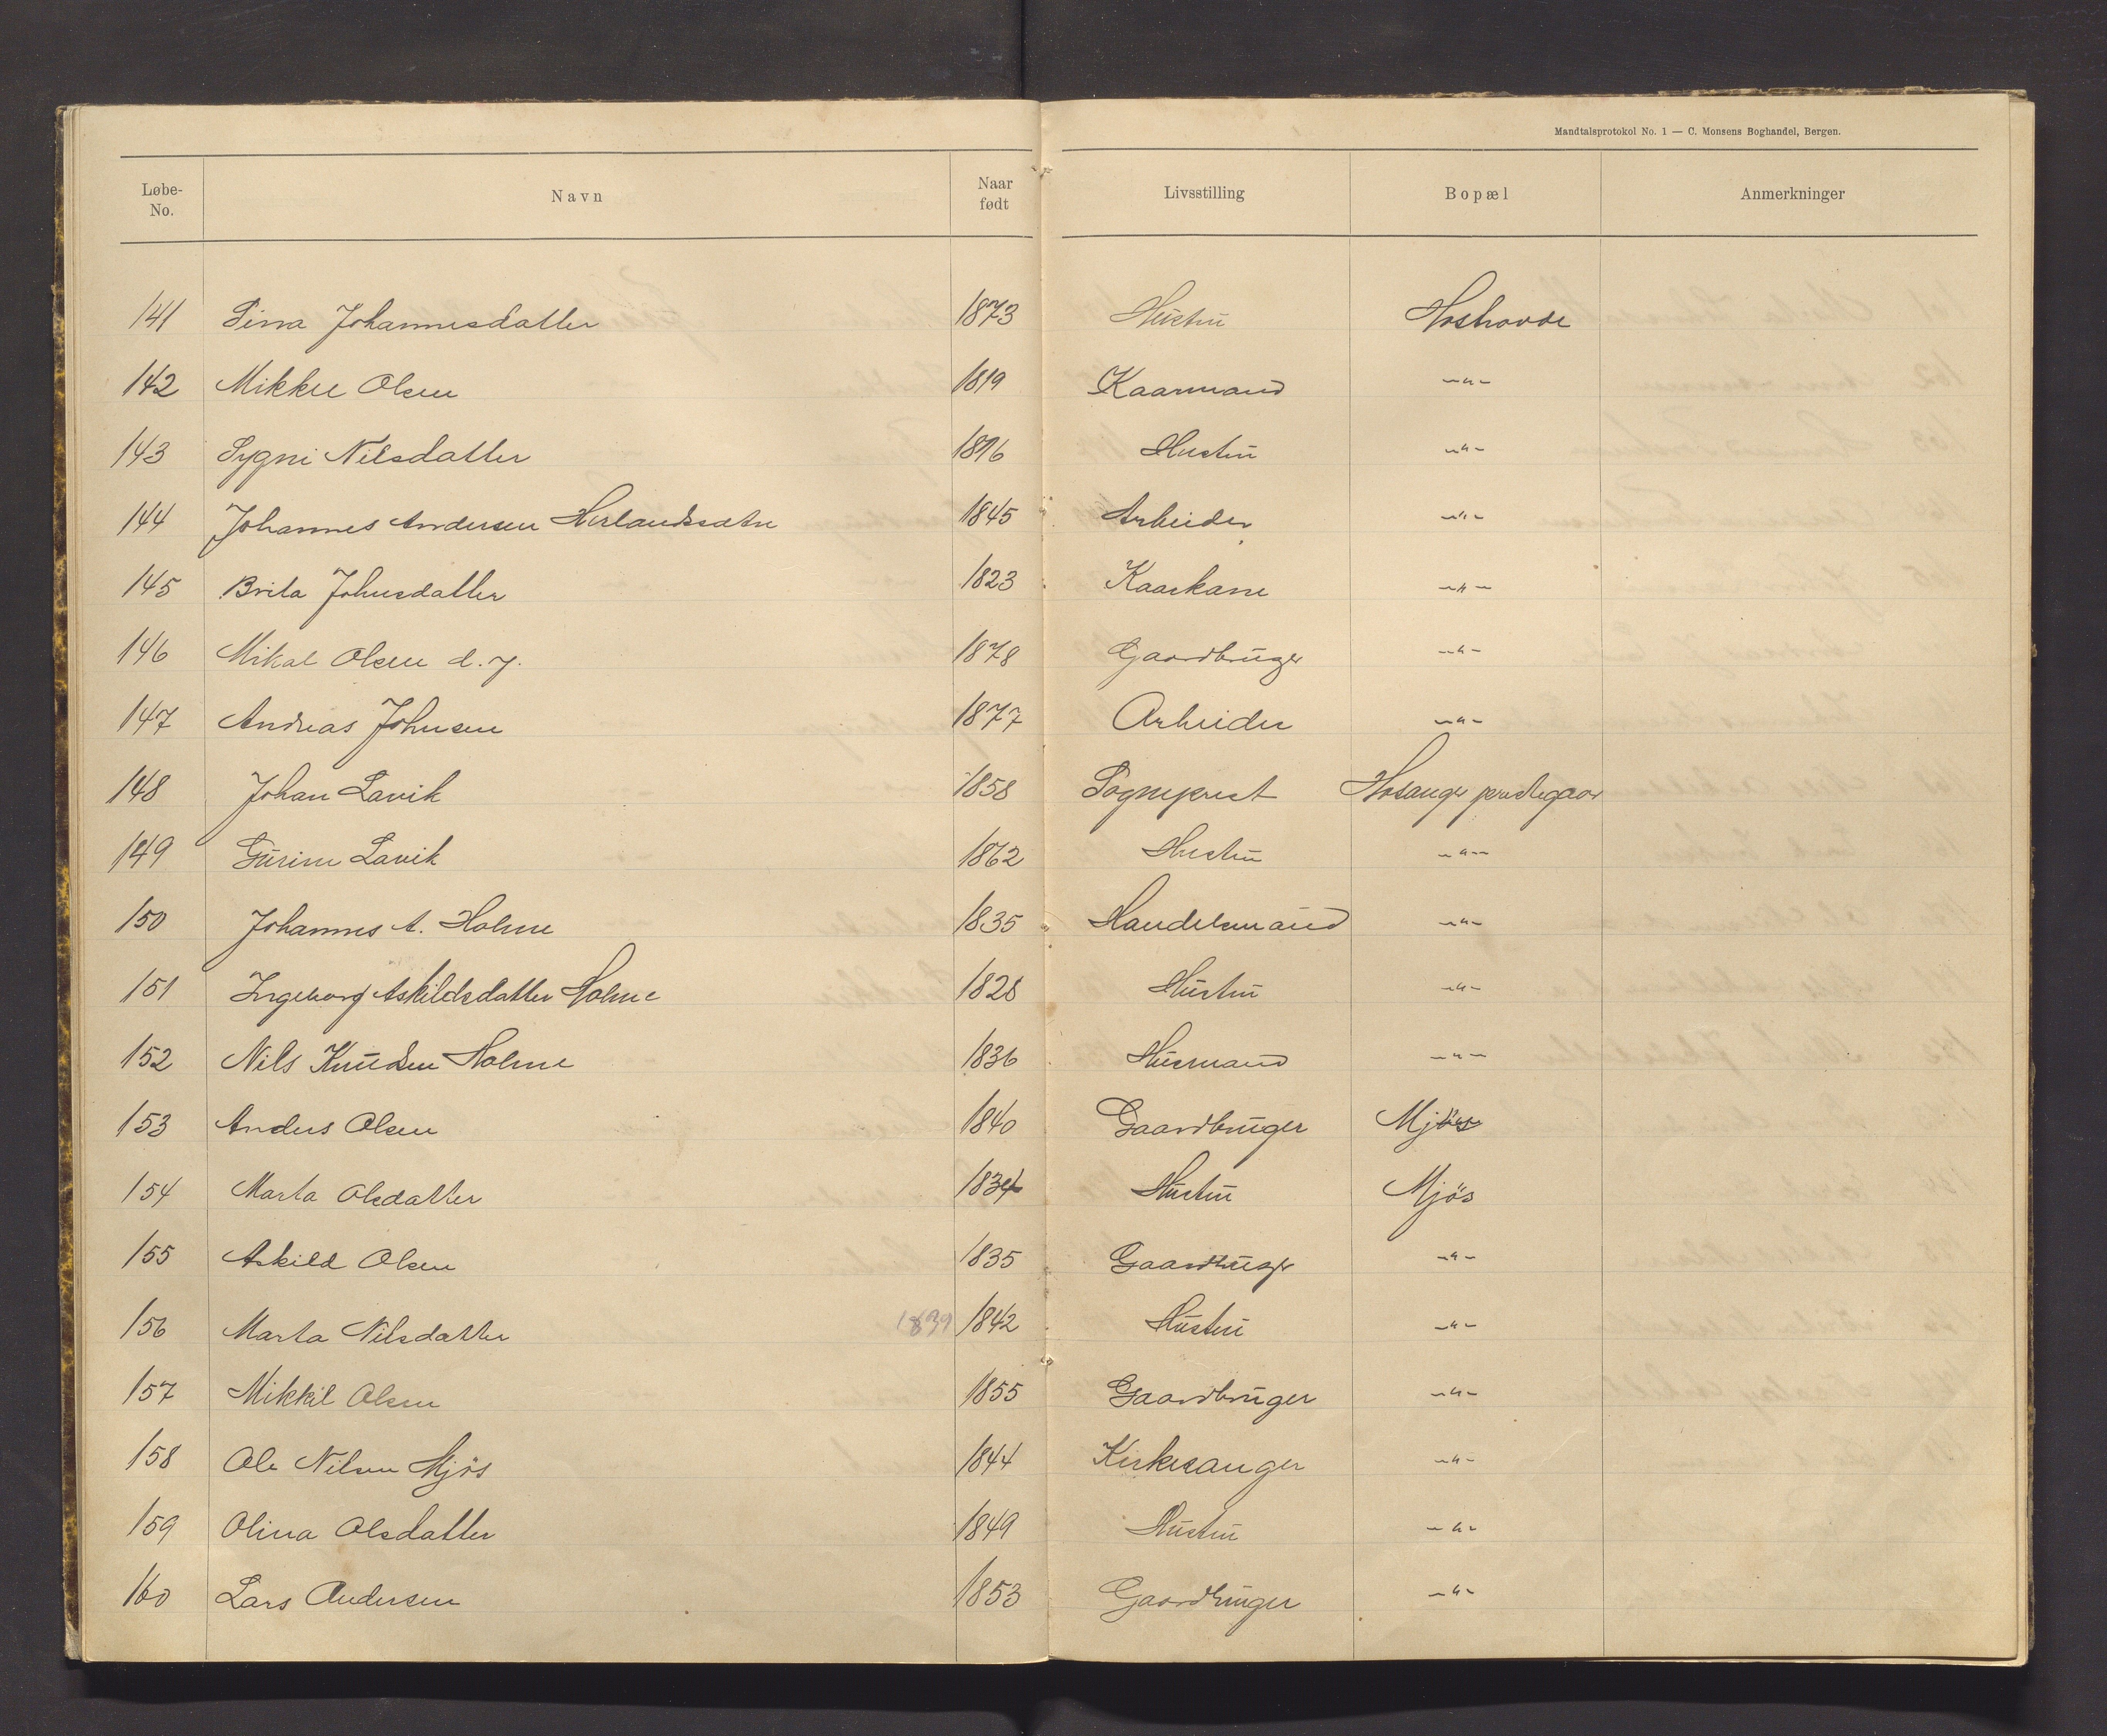 Mandtalsprotokol No. 1 — C. Monsens Boghandel, Bergen.
Løbe-No. Navn Naar født Livsstilling Bopæl Anmerkninger
141 Sina Johannesdatter 1873 Hustru
142 Mikkel Olsen 1819 Kaarmand -"-
143 Sygni Nilsdatter 1816 Hustru -"-
144 Johannes Andersen 1845 Arbeider -"-
145 Brita Johnsdatter 1823 Kaarkone -"-
146 Mikal Olsen d. y. 1878 Gaardbruger -"-
147 Andreas Johnsen 1877 Arbeider -"-
148 Johan Lavik 1858 Sogneprest Hosanger prestegaar
149 Lavik 1862 Hustru -"-
150 Johannes A. Holme 1835 Handelsmand -"-
151 Ingeborg Askildsdatter Holme 1828 Hustru -"-
152 Nils Knudsen Holme 1836 Husmand -"-
153 Anders Olsen 1840 Gaardbruger Mjøs
154 Marta Olsdatter 1834 Hustru Mjös
155 Askild Olsen 1835 Gaardbruger -"-
156 Marta Nilsdatter 1839 1842 Hustru -"-
157 Mikkel Olsen 1855 Gaardbruger -"-
158 Ole Nilsen Mjös 1844 Kirkesanger -"-
159 Olina Olsdatter 1849 Hustru -"-
160 Lars Andersen 1853 Gaardbruger -"-